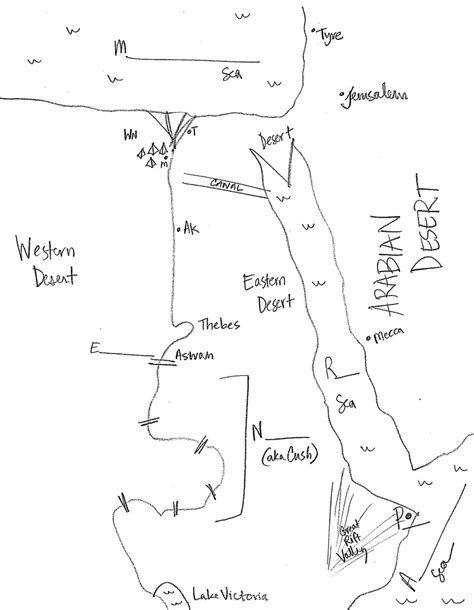 Tyre
M
Sea
Jerusalem
WN
T
m
Desert
CANAL
Ak
Western
Desert
Eastern
Desert
ARABIAN
DESERT
Thebes
Mecca
E
Aswan
R
Sea
N
(aka Cush)
Great
Rift
Valley
P
A
Sea
Lake Victoria